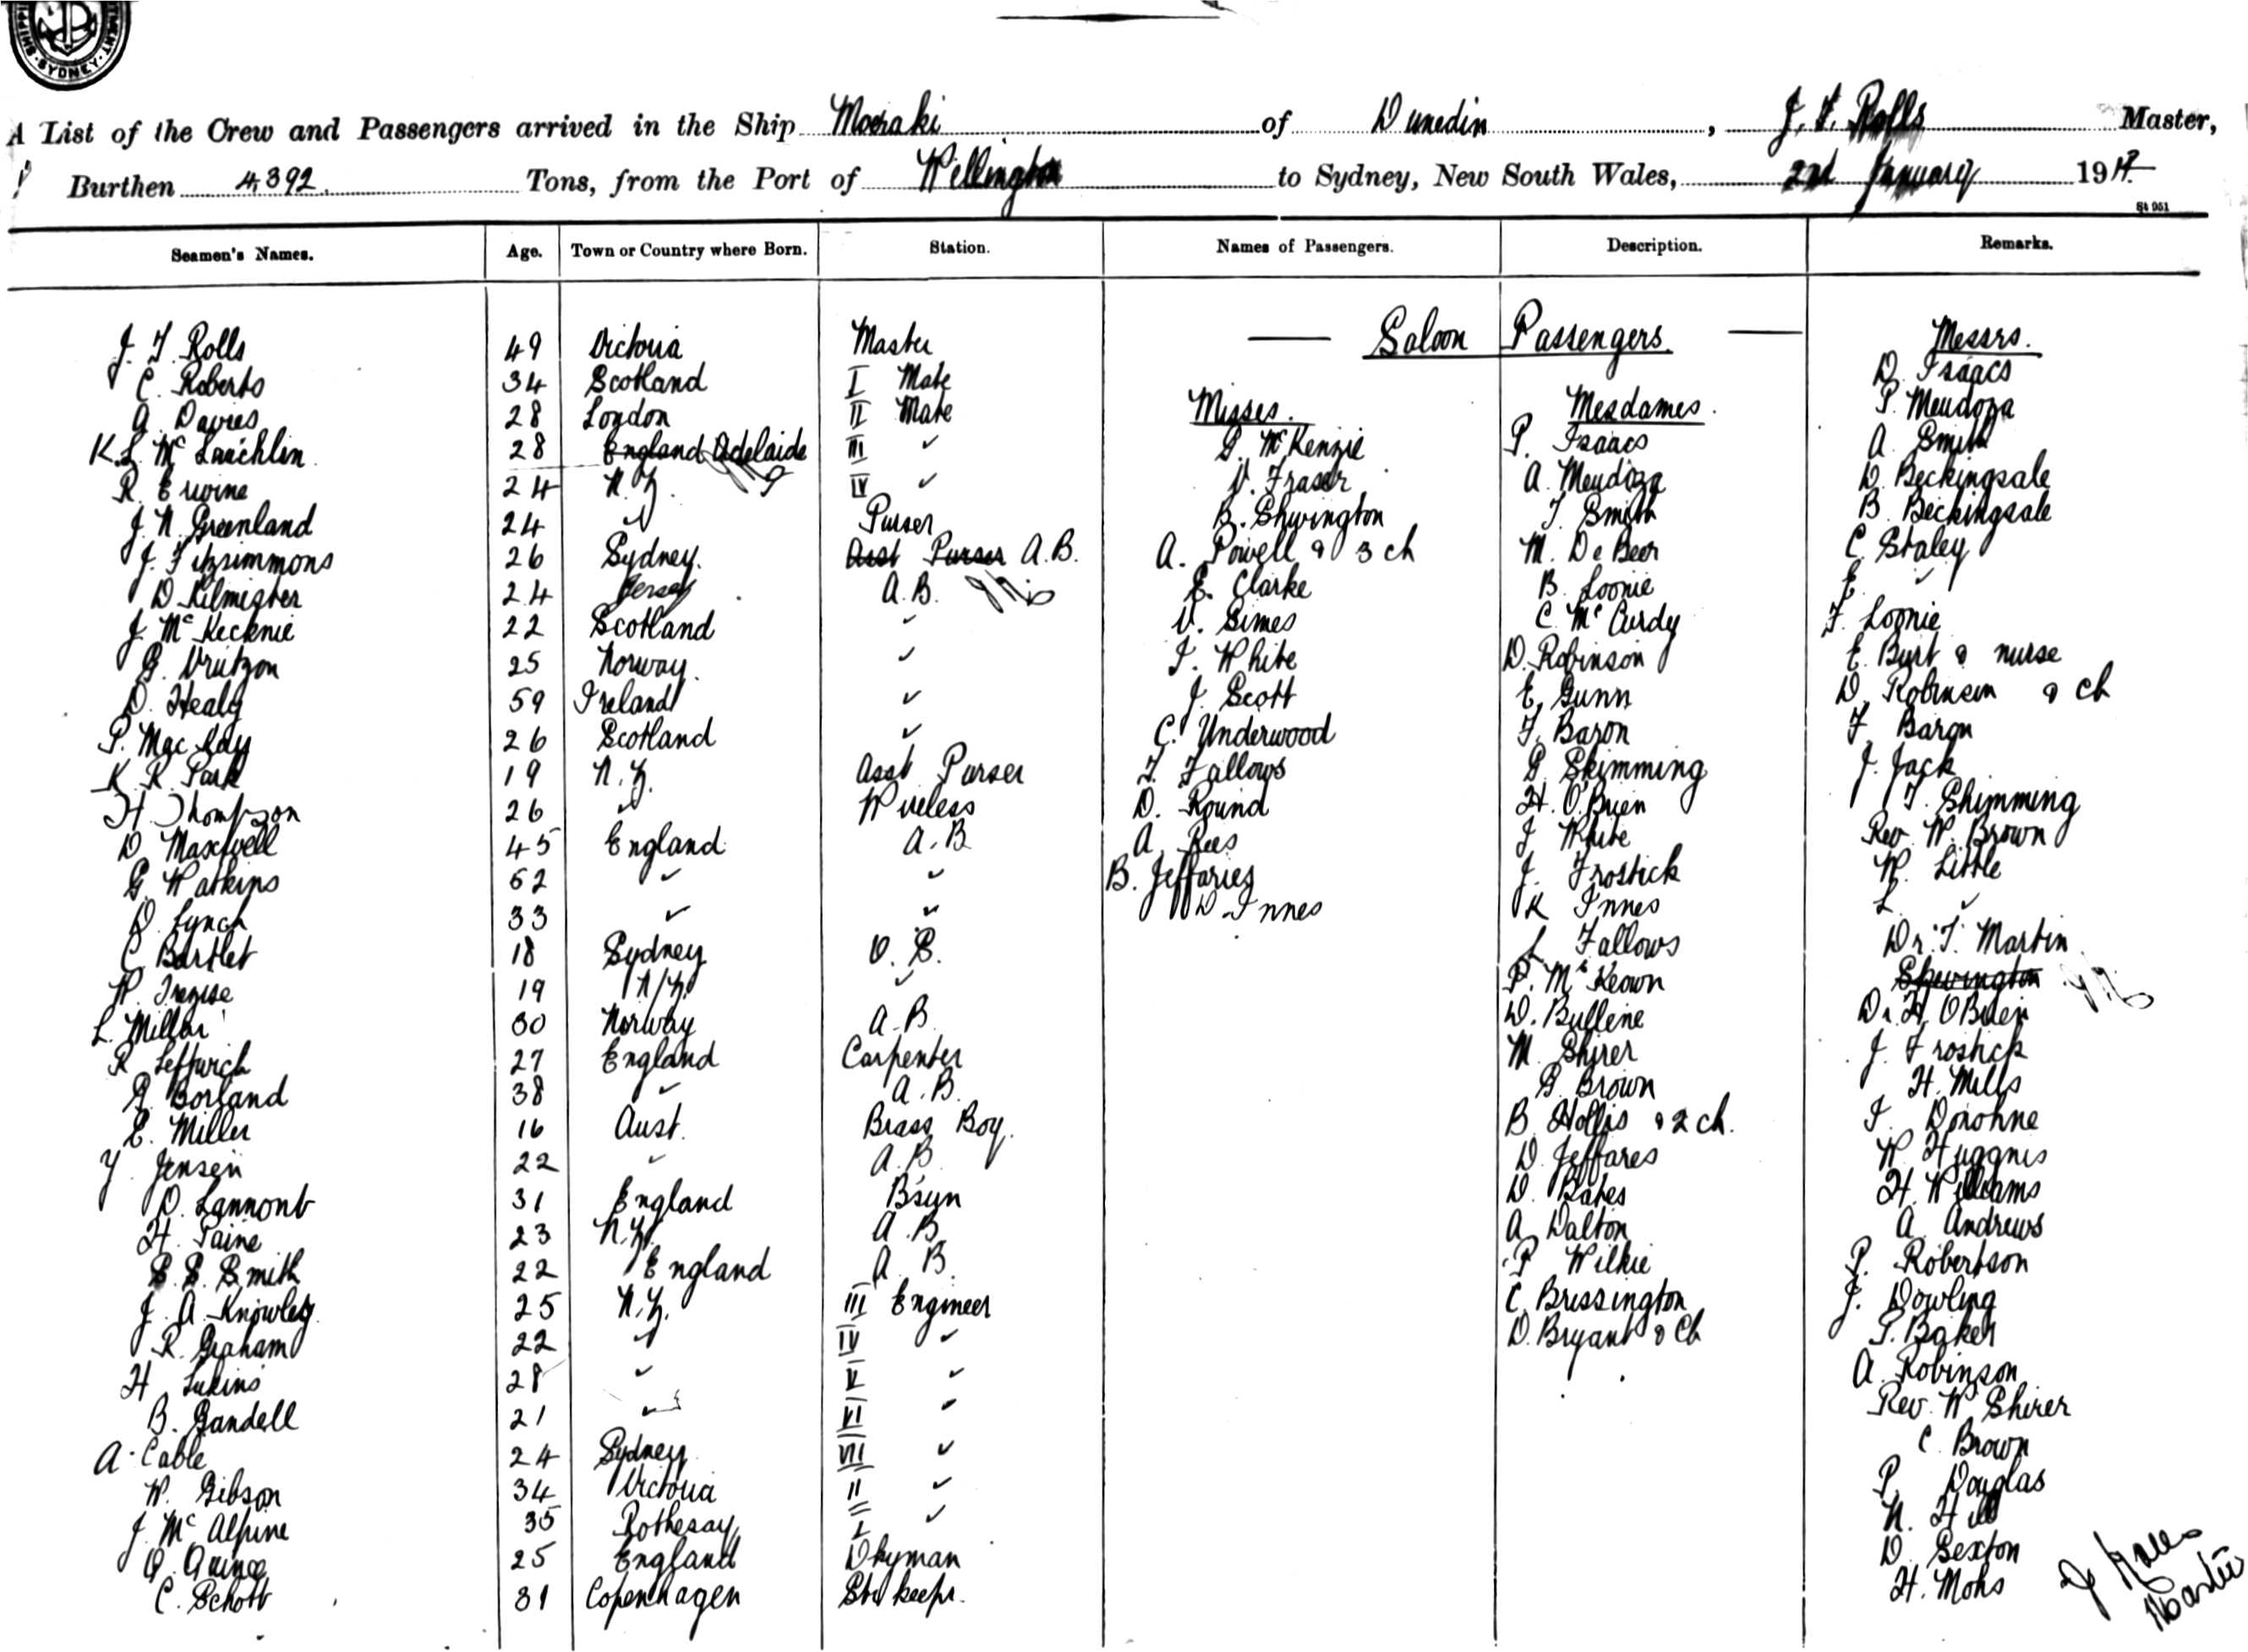 SYDNEY
A List of the Crew and Passengers arrived in the Ship Moeraki of Dunedin, J. F. Rolls Master,
Burthen 4,392 Tons, from the Port of Wellington to Sydney, New South Wales, 2nd January 191
St 951
Seamen's Names. Age. Town or Country where Born. Station. Names of Passengers. Description. Remarks.
Saloon Passengers. Messrs.
J. F. Rolls 49 Victoria Master D. Isaacs
C. Roberts 34 Scotland I Mate Misses. Mesdames. P. Mendoza
A. Davies 28 London II Mate G. McKenzie P. Isaacs A. Smith
K. L. Mc Lauchlin 28 England Adelaide III " V. Fraser A. Mendoza D. Beckingsale
R. Erwine 24 N.Z. IV " B. Shrvington T. Smith B. Beckingsale
J. N. Greenland 24 " Purser A. Powell & 3 ch M. De Beer C. Staley
J. Fitzsimmons 26 Sydney. Asst Purser A.B. E. Clarke B. Loonie E. "
D. Kilmister 24 Jersey A.B. V. Simes C. McCurdy F. Loonie
J. Mc Kecknie 22 Scotland " I. White D. Robinson E. Burt & nurse
G. Vrutzon 25 Norway. " J. Scott E. Gunn D. Robinson & Ch
D. Healy 59 Ireland " C. Underwood F. Baron F. Baron
P. Mac Kay 26 Scotland " F. Fallows G. Skimming J. Jack
K. R. Park 19 N.Z. Asst Purser D. Round H. O'Brien T. Skimming
H. Thompson 26 " Wireless A. Rees J. White Rev. W. Brown
D. Maxwell 45 England A.B. B. Jeffaries J. Frostick W. Little
G. Watkins 52 " " D. Innes K. Innes L. "
D. Lynch 33 " " L. Fallows Dr. T. Martin
C. Bartlet 18 Sydney O.S. P. McKeown Shrvington
W. Tregise 19 N.Z. " D. Bullene Dr. H. O'Brien
L. Millar 30 Norway A.B. M. Shirer J. Frostick
R. Leftwich 27 England Carpenter G. Brown H. Mills
G. Borland 38 " A.B. B. Hollis & 2 ch. I. Donohne
E. Miller 16 Aust. Brass Boy. D. Jeffares W. Huggnis
Y. Jensen 22 " A.B. D. Bates H. Williams
D. Lannont 31 England B'syn A. Dalton A. Andrews
H. Paine 23 N.Z. A.B. P. Wilkie P. Robertson
S. S. Smith 22 England A.B. C. Brissington J. Dowling
J. A. Knowles 25 N.Z. III Engineer D. Bryant & Ch T. Baker
R. Graham 22 " IV " A. Robinson
H. Lukins 28 " V " Rev. W. Shirer
B. Gandell 21 " VI " C. Brown
A. Cable 24 Sydney VII " P. Douglas
W. Gibson 34 Victoria II " N. Hill
J. Mc Alpine 35 Rothesay I " D. Sexton
A. Quince 25 England Dkyman H. Mohs
C. Schott 31 Copenhagen Str keepr.
J Rolls
Master